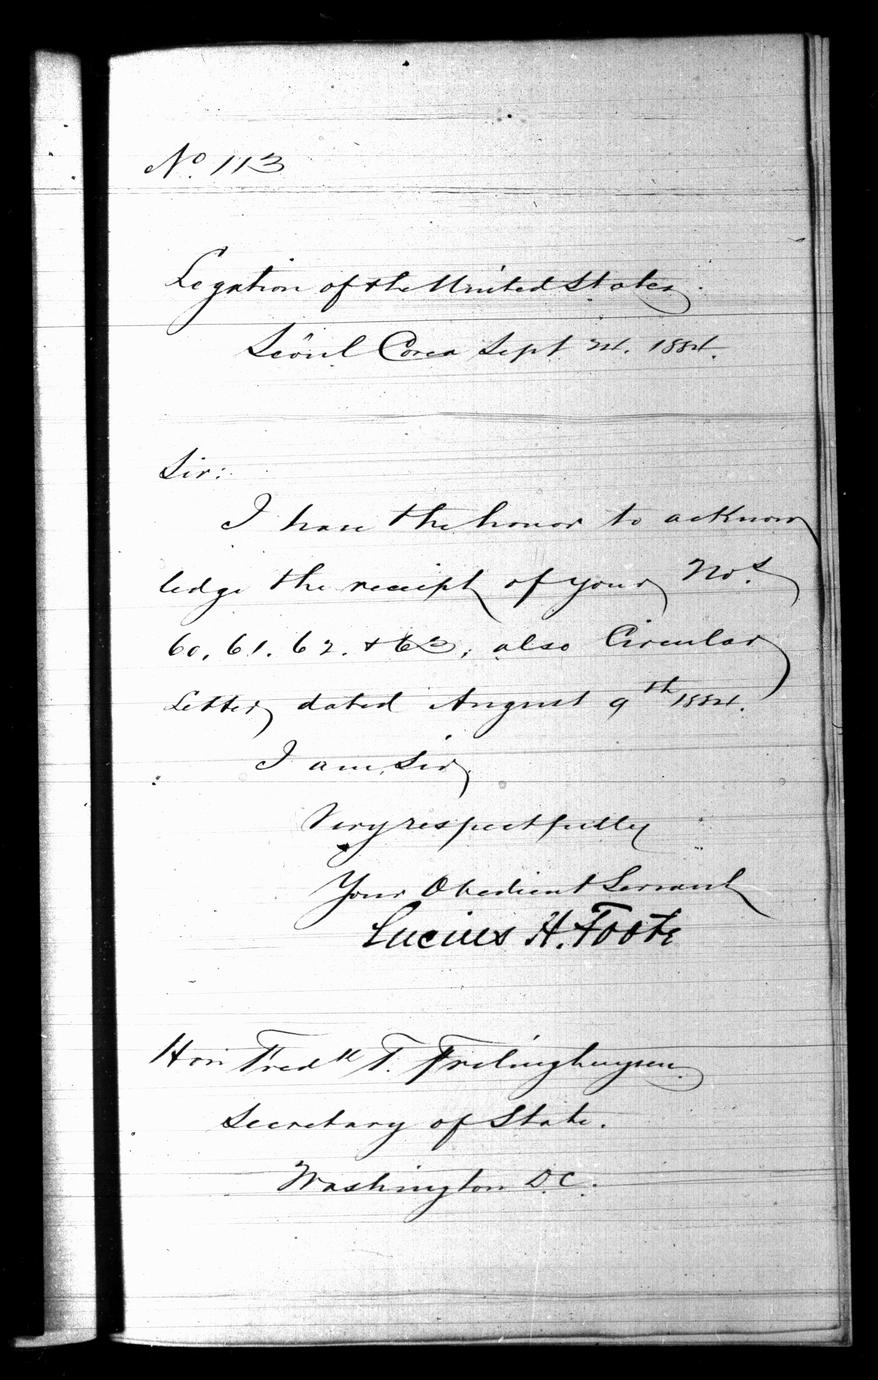 No. 113
Legation of the United States.
Seoul Corea Sept 24. 1884.
Sir:
I have the honor to acknow
ledge the receipt of your Nos.
60. 61. 62. & 63; also Circular
Letter, dated August 9th 1884.
I am, Sir,
Very respectfully
Your Obedient Servant
Lucius H. Foote
Hon Fredk T. Frelinghuysen.
Secretary of State.
Washington D.C.